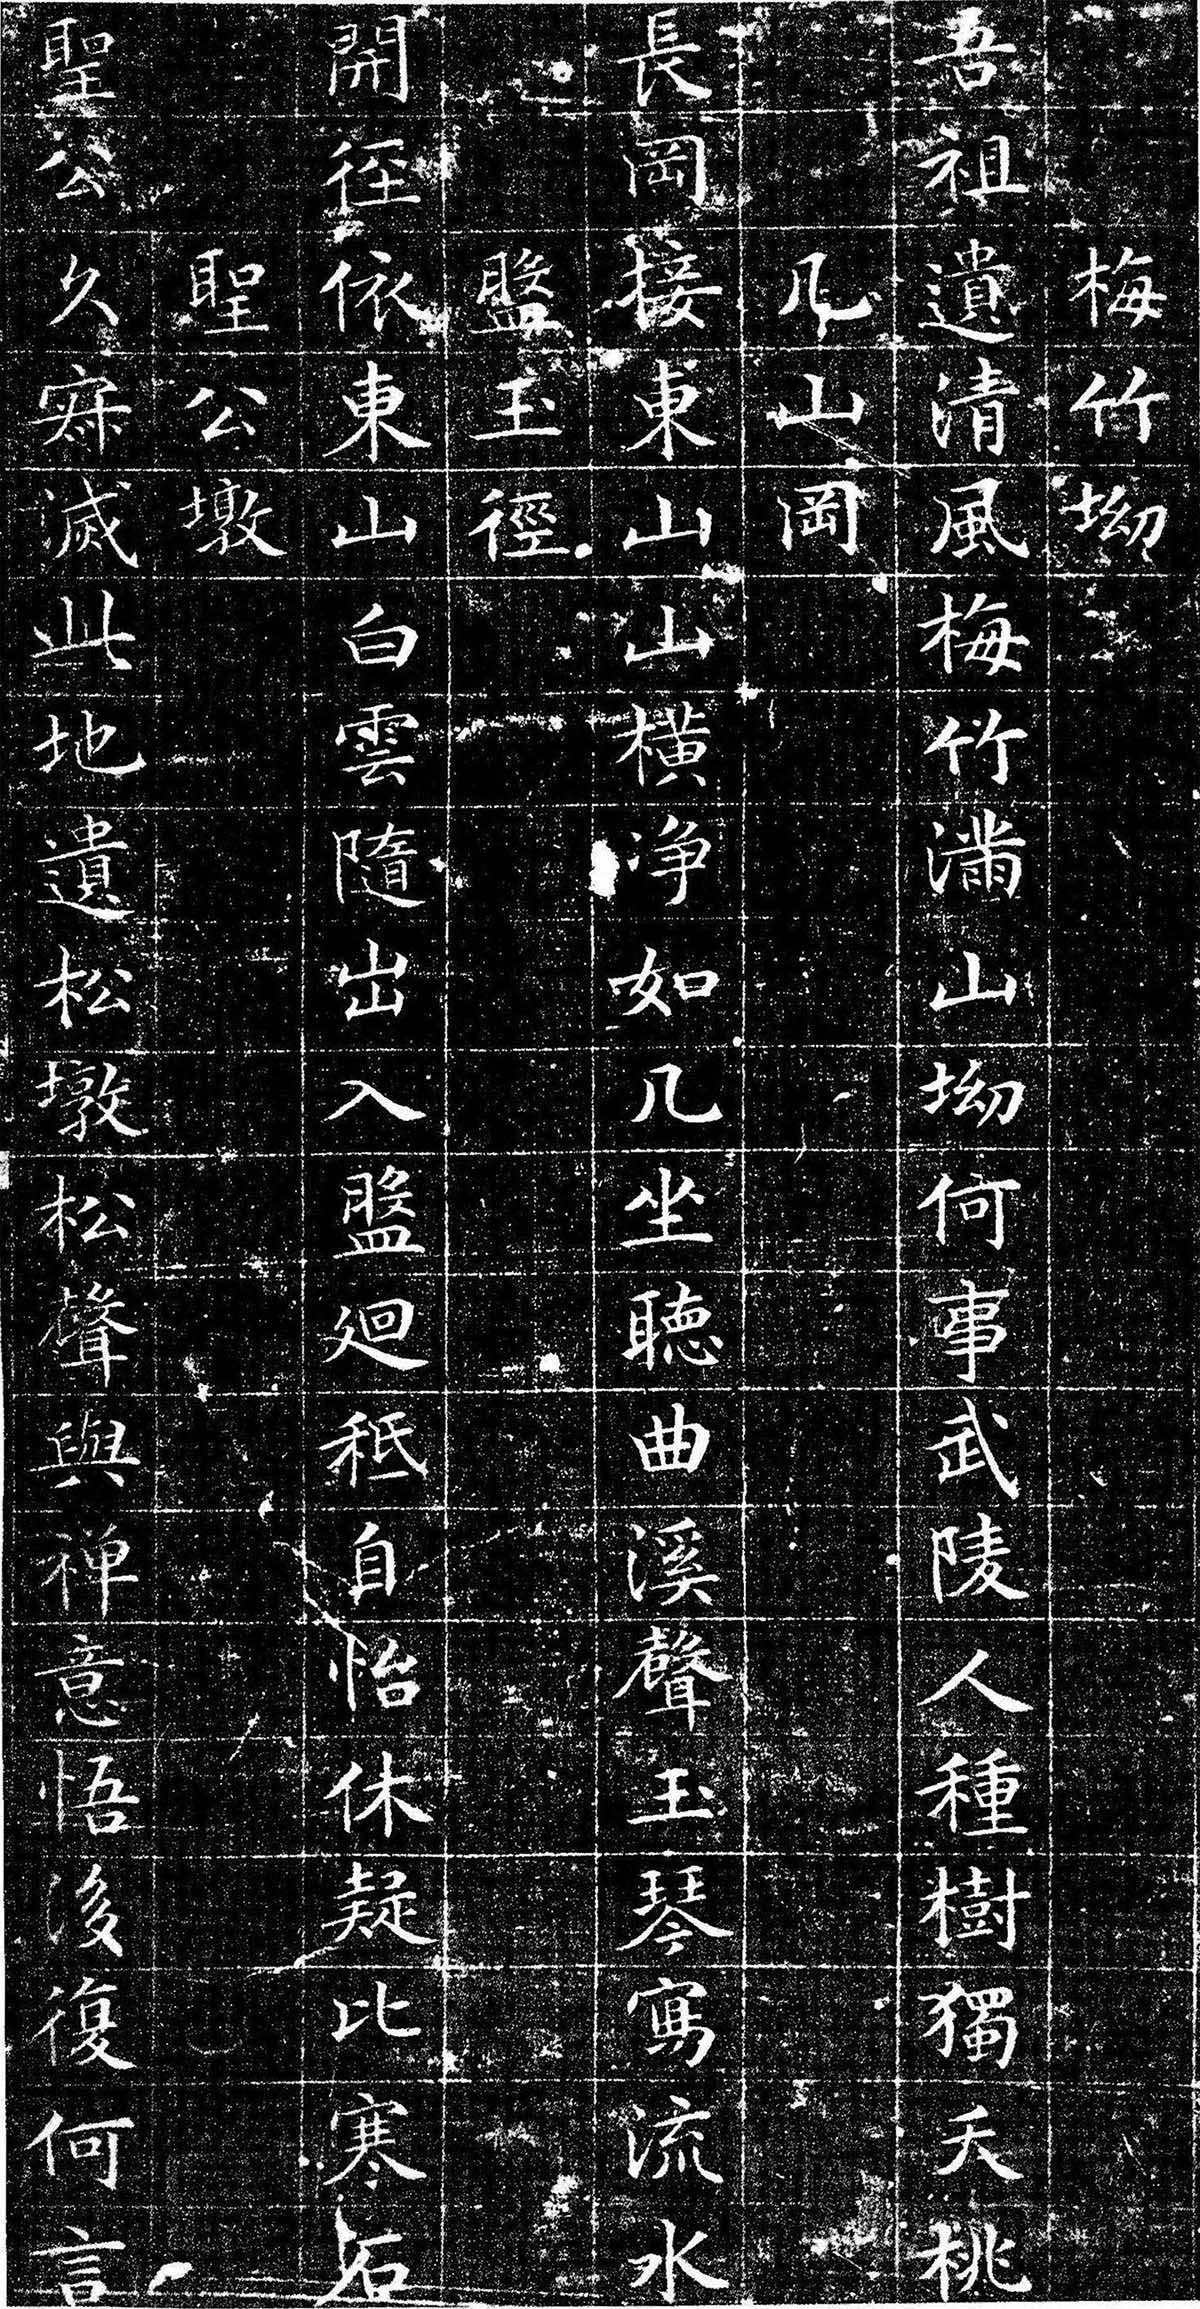 梅竹坳
吾祖遺清風梅竹滿山坳何事武陵人種樹獨夭桃
几山岡
長岡接東山山橫淨如几坐聽曲溪聲玉琴寫流水
盤玉徑
開徑依東山白雲隨出入盤迴秪自怡休疑比寒石
聖公墩
聖公久寂滅此地遺松墩松聲與禅意悟後復何言